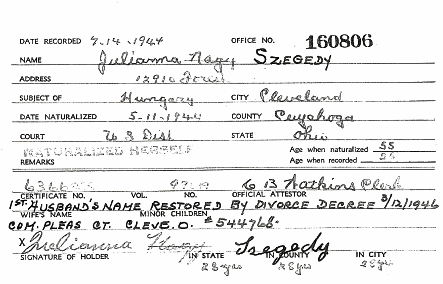 DATE RECORDED 7-14-1944 OFFICE NO. 160806
NAME Julianna Nagy SZEGEDY
ADDRESS 12910 Forest
SUBJECT OF Hungary CITY Cleveland
DATE NATURALIZED 5-11-1944 COUNTY Cuyahoga
COURT U S Dist STATE Ohio
NATURALIZED HERSELF Age when naturalized 55
REMARKS Age when recorded
C B Watkins Clerk
CERTIFICATE NO. VOL. NO. OFFICIAL ATTESTOR
1ST. HUSBAND'S NAME RESTORED BY DIVORCE DECREE 3/12/1946
WIFE'S NAME MINOR CHILDREN
COM. PLEAS CT. CLEVE. O. #544768.
X Julianna Nagy Szegedy
SIGNATURE OF HOLDER IN STATE IN COUNTY IN CITY
28 yrs 28 yrs 28 yrs